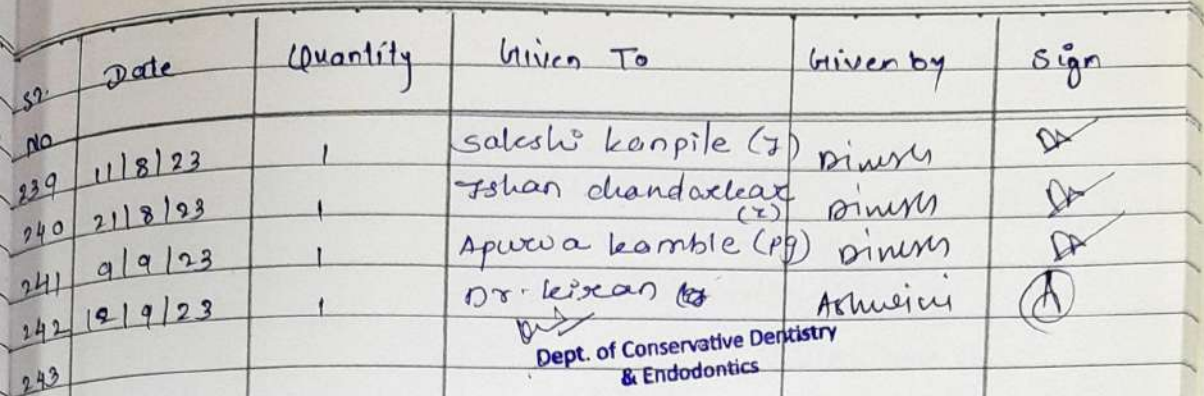 Sr. No Date Quantity Given To Given by Sign
239 11/8/23 1 Sakshi kanpile (I) Dinesh
240 21/8/23 1 Ishan chandarkar (I) Dinesh
241 9/9/23 1 Apurva kamble (pg) Dinesh
242 12/9/23 1 Dr. kiran Ashwini A
243
Dept. of Conservative Dentistry
& Endodontics